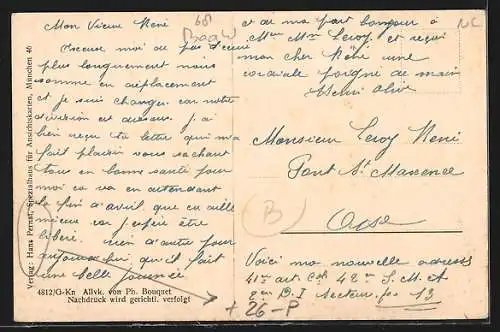 Mon Vieux René
Excuse moi de pas t'écrire
plus longuement nous
somme en déplacement
et je suis changer car notre
division est dissous. j'ai
bien reçu ta lettre qui m'a
fait plaisir vous sachant
tous en bonne santé pour
moi ca va en attendant
la fin d'avril que ca aille
mieux car j'espère être
libéré. rien d'autre pour
aujourd'hui qu'il fait
une belle journée
et de ma part bonjour à
Mr Mme Leroy et reçoi
mon cher René une
cordiale poigné de main
Henri Olive
Monsieur Leroy René
Pont St Maxence
Oise
Voici ma nouvelle adresse
41me art. Col 42me S.M. et
2me D.I Secteur po 13
68
NC
B
+ 26-P
Verlag: Hans Pernat, Spezialhaus für Ansichtskarten, München 46
4812/G-Kn Allvk. von Ph. Bouquet
Nachdruck wird gerichtl. verfolgt